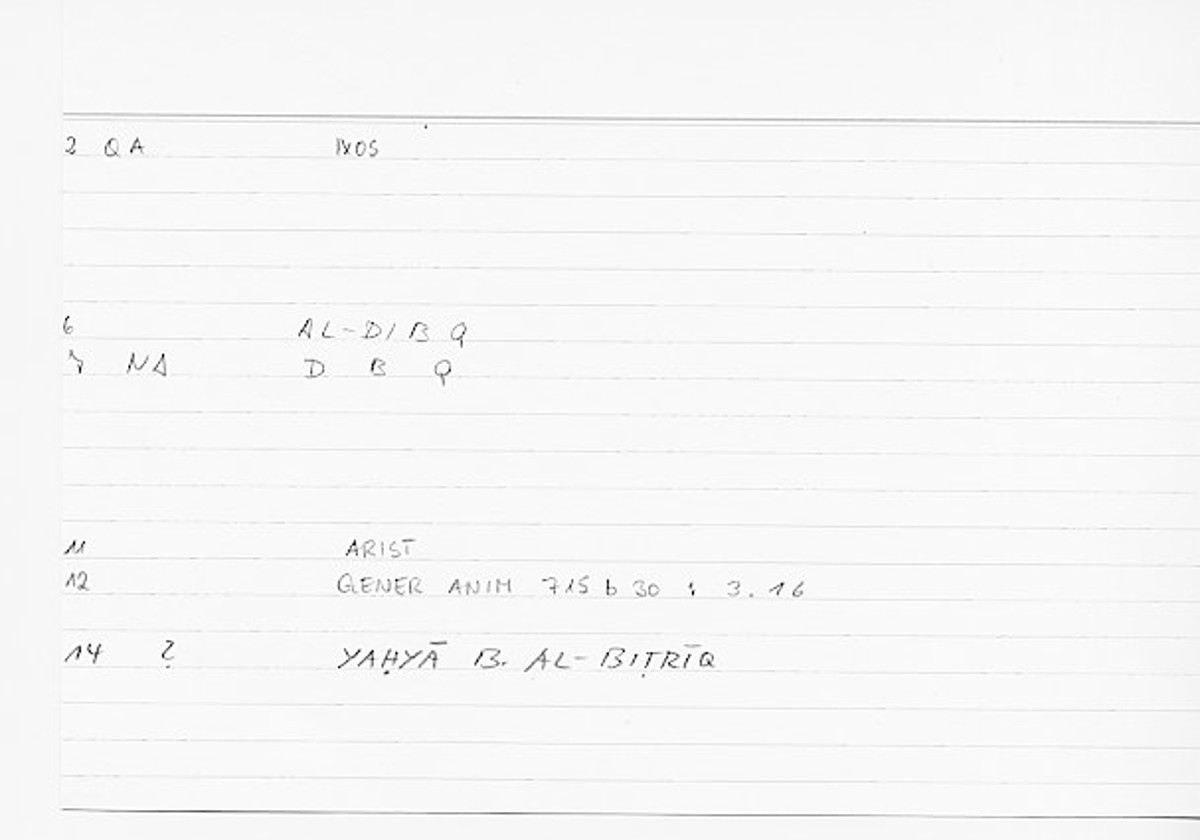 2 QA IXOS
6 AL-DIBQ
7 NA D B Q
11 ARIST
12 GENER ANIM 715 b 30 : 3.16
14 ? YAḤYĀ B. AL-BIṬRĪQ